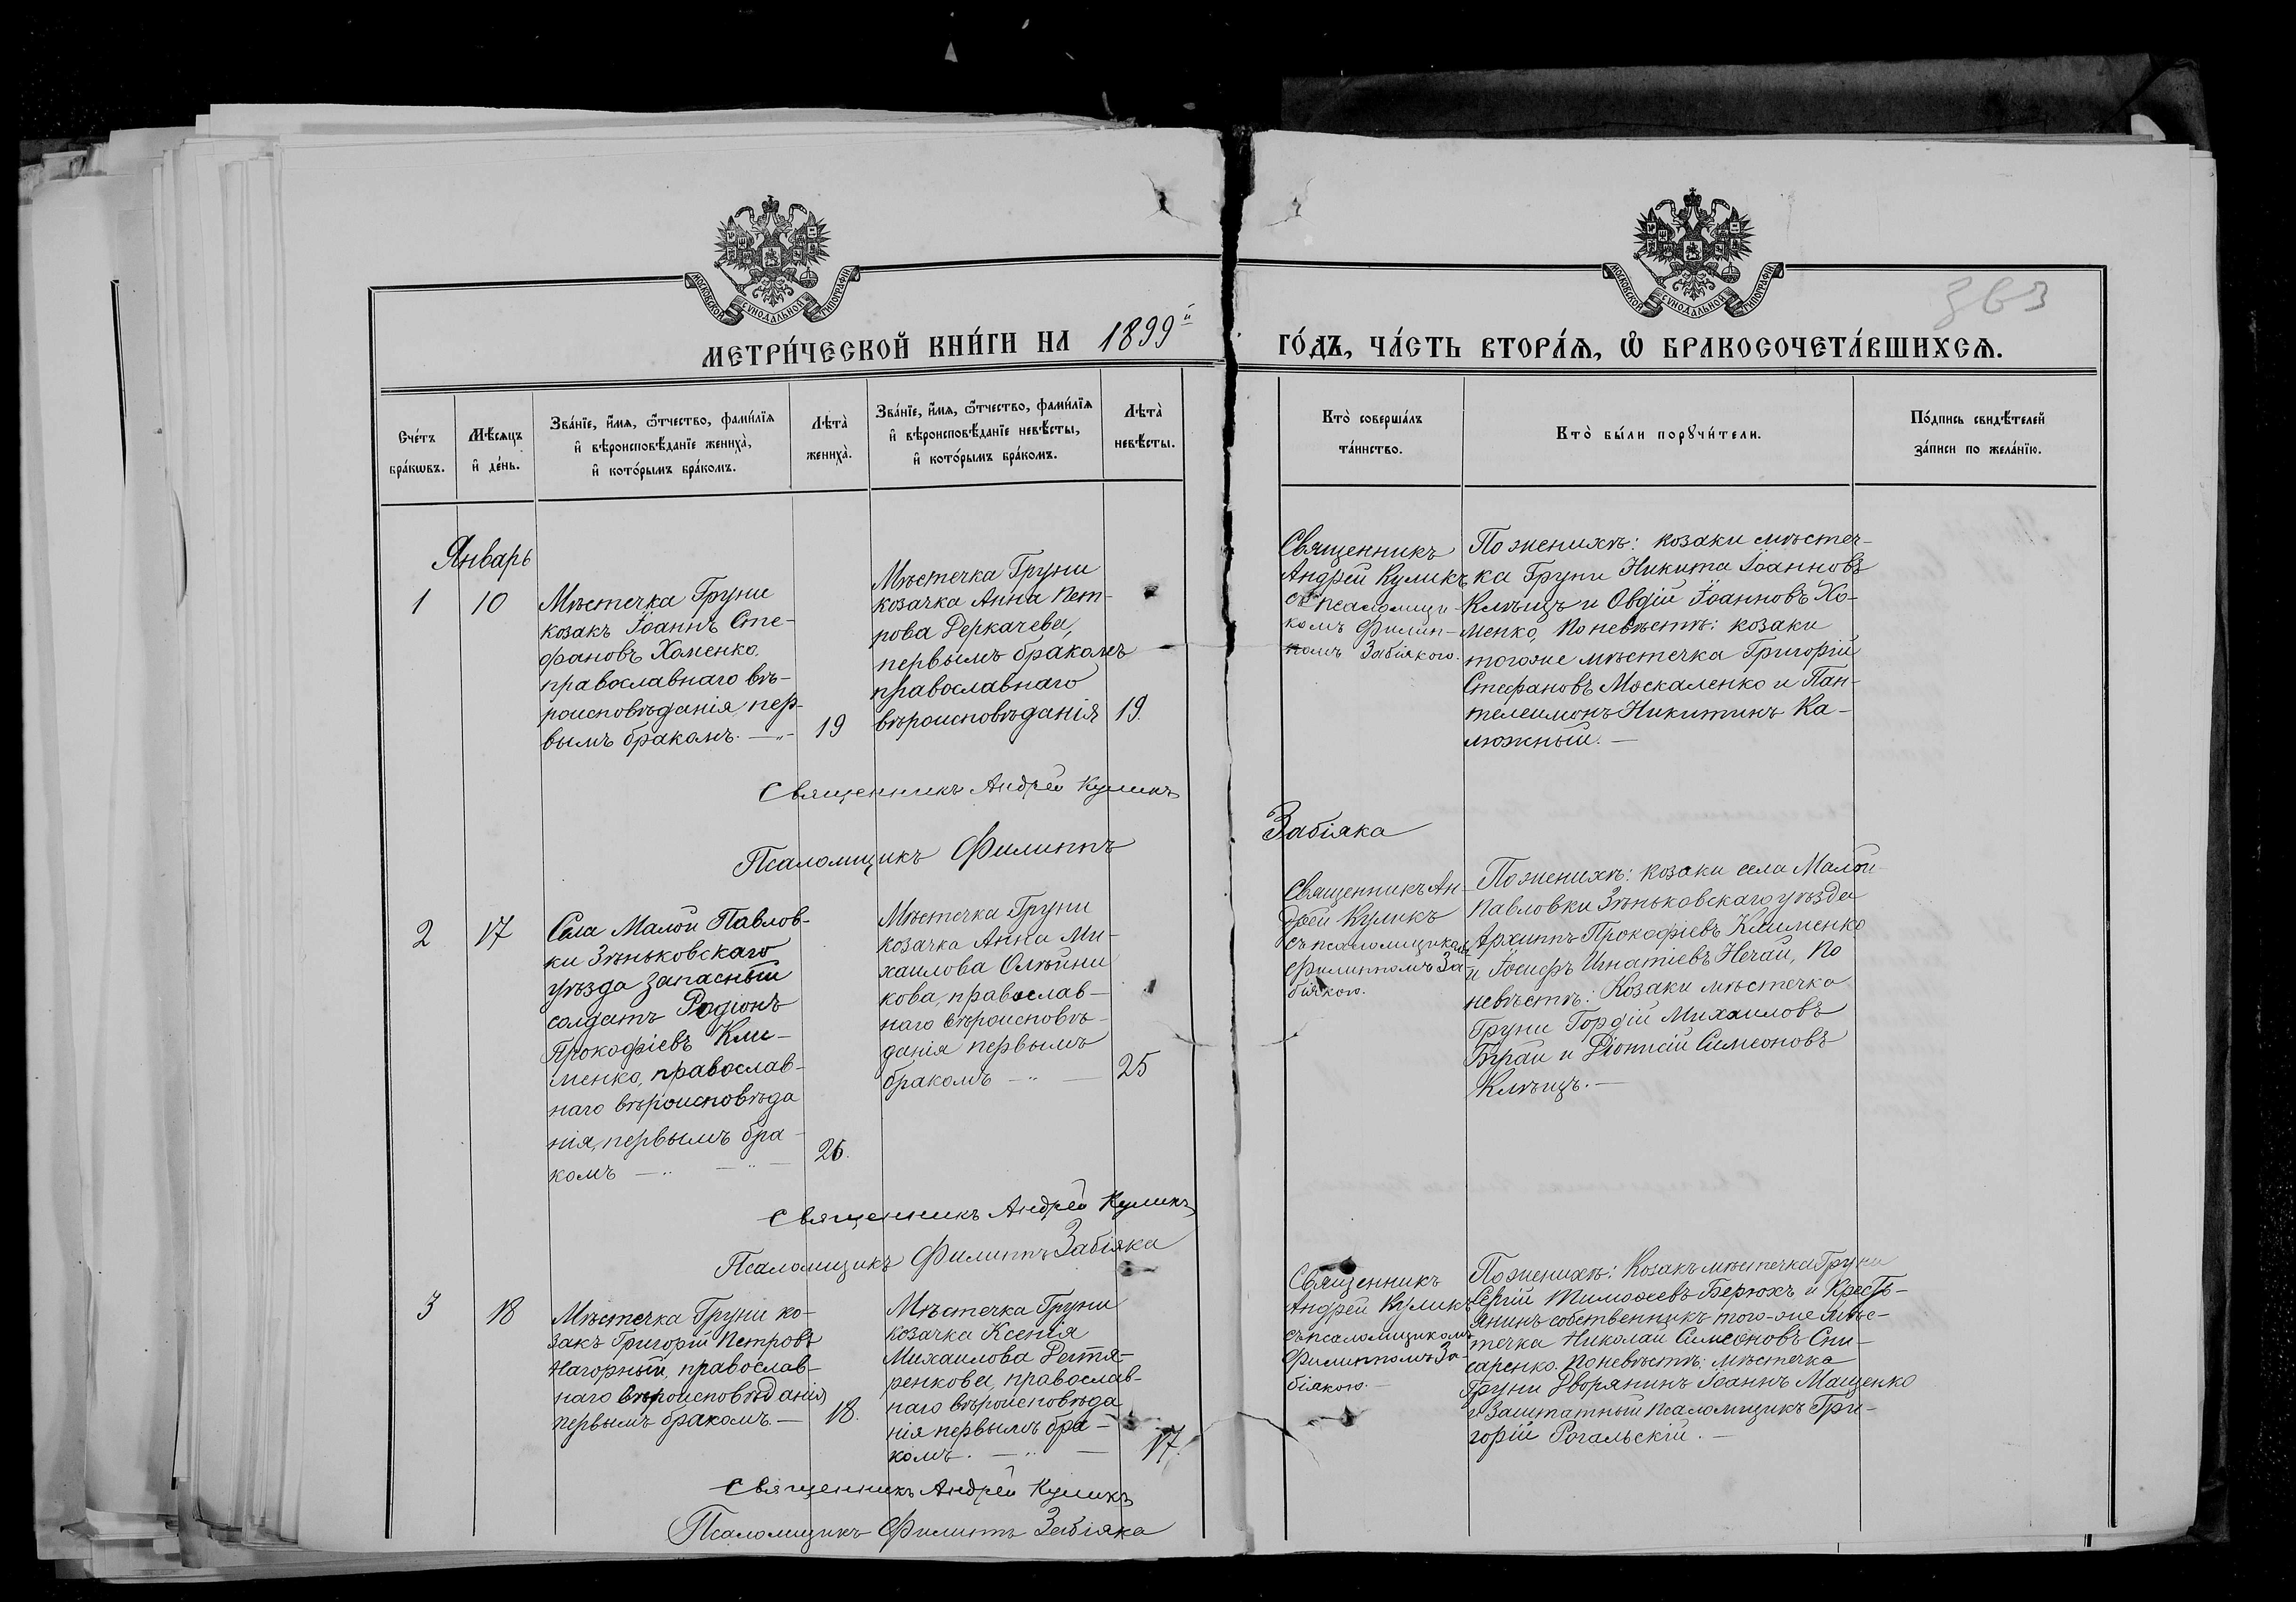 363
МОСКОВСКОЙ СѴНОДАЛЬНОЙ ТИПОГРАФІИ
МОСКОВСКОЙ СѴНОДАЛЬНОЙ ТИПОГРАФІИ
МЕТРИ́ЧЕСКОЙ КНИ́ГИ НА 1899й
ГО́ДЪ, ЧА́СТЬ ВТОРА́Ѧ, Ѽ БРАКОСОЧЕТА́ВШИХСѦ.
Сче́тъ
бра́кѡвъ.
Мѣ́сѧцъ
и҆ де́нь.
Зва́нїе, и҆́мѧ, ѻ҆́тчество, фами́лїѧ
и҆ вѣроисповѣ́данїе жениха̀,
и҆ кото́рымъ бра́комъ.
Лѣта̀
жениха̀.
Зва́нїе, и҆́мѧ, ѻ҆́тчество, фами́лїѧ
и҆ вѣроисповѣ́данїе невѣ́сты,
и҆ кото́рымъ бра́комъ.
Лѣта̀
невѣ́сты.
Кто̀ соверша́лъ
та́инство.
Кто̀ бы́ли порꙋчи́тели.
По́дпись свидѣ́телей
за́писи по жела́нїю.
Январь
1
10
Мѣстечка Груни
козакъ Іоаннъ Сте-
фановъ Хоменко,
православнаго вѣ-
роисповѣданія, пер-
вымъ бракомъ.
19
Мѣстечка Груни
козачка Анна Пет-
рова Деркачева,
первымъ бракомъ
православнаго
вѣроисповѣданія
19.
Священникъ
Андрей Куликъ
съ псаломщи-
комъ Филип-
помъ Забіякою.
По женихѣ: козаки мѣстеч-
ка Груни Никита Іоанновъ
Клѣщъ и Овдій Іоанновъ Хо-
менко, По невѣстѣ: козаки
того-же мѣстечка Григорій
Стефановъ Москаленко и Пан-
телеимонъ Никитинъ Ка-
люжный.
Священникъ Андрей Куликъ
Псаломщикъ Филиппъ Забіяка
2
17
Села Малой Павлов-
ки Зѣньковскаго
уѣзда запасный
солдатъ Родіонъ
Прокофіевъ Кли-
менко, православ-
наго вѣроисповѣда
нія, первымъ бра-
комъ
26.
Мѣстечка Груни
козачка Анна Ми-
хаилова Олѣйни
кова, православ-
наго вѣроисповѣ-
данія первымъ
бракомъ
25
Священникъ Ан-
дрей Куликъ
съ псаломщикомъ
Филиппомъ За-
біякою.
По женихѣ: козаки села Малой
Павловки Зѣньковскаго уѣзда
Архиппъ Прокофіевъ Клименко
и Іосифъ Игнатіевъ Нечай, По
невѣстѣ: Козаки мѣстечка
Груни Гордій Михаиловъ
и Діонисій Симеоновъ
Клѣщъ.
Священникъ Андрей Куликъ
Псаломщикъ Филиппъ Забіяка
3
18
Мѣстечка Груни ко-
закъ Григорій Петровъ
Нагорный, православ-
наго вѣроисповѣданія
первымъ бракомъ.
18.
Мѣстечка Груни
козачка Ксенія
Михаилова Дегтя-
ренкова, православ-
наго вѣроисповѣда
нія первымъ бра-
комъ.
17.
Священникъ
Андрей Куликъ
съ псаломщикомъ
Филиппомъ За-
біякою.
По женихѣ: Козакъ мѣстечка Груни
Сергій Тимофеевъ Берюхъ и Кресть-
янинъ собственникъ того-же мѣс-
течка Николай Симеоновъ Сли-
саренко. По невѣстѣ: мѣстечка
Груни Дворянинъ Іоаннъ Мащенко
и Заштатный псаломщикъ Гри-
горій Рогальскій.
Священникъ Андрей Куликъ
Псаломщикъ Филиппъ Забіяка